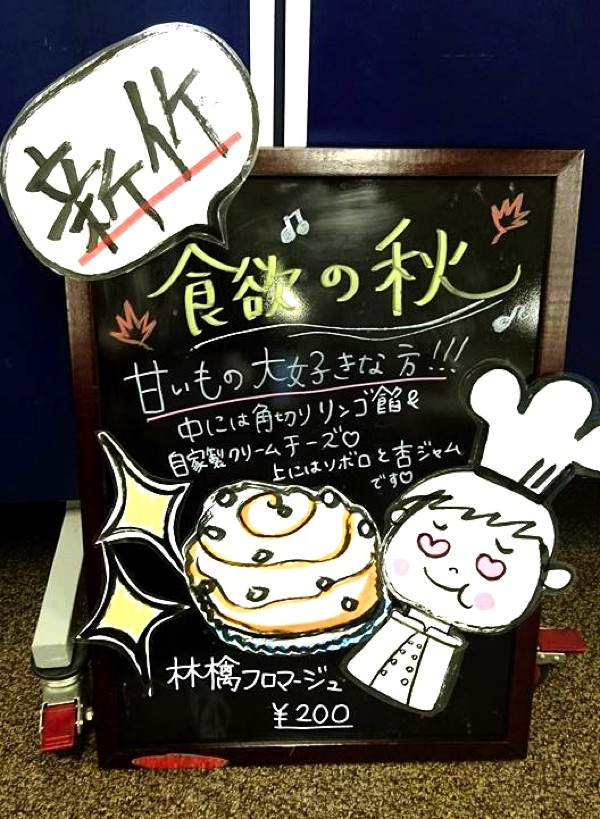 新竹
食欲の秋
甘いもの大好きな方!!!
中には角切りリンゴ餡&
自家製クリームチーズ♡
上にはソボロと杏ジャム
です♡
林檎フロマージュ
¥200